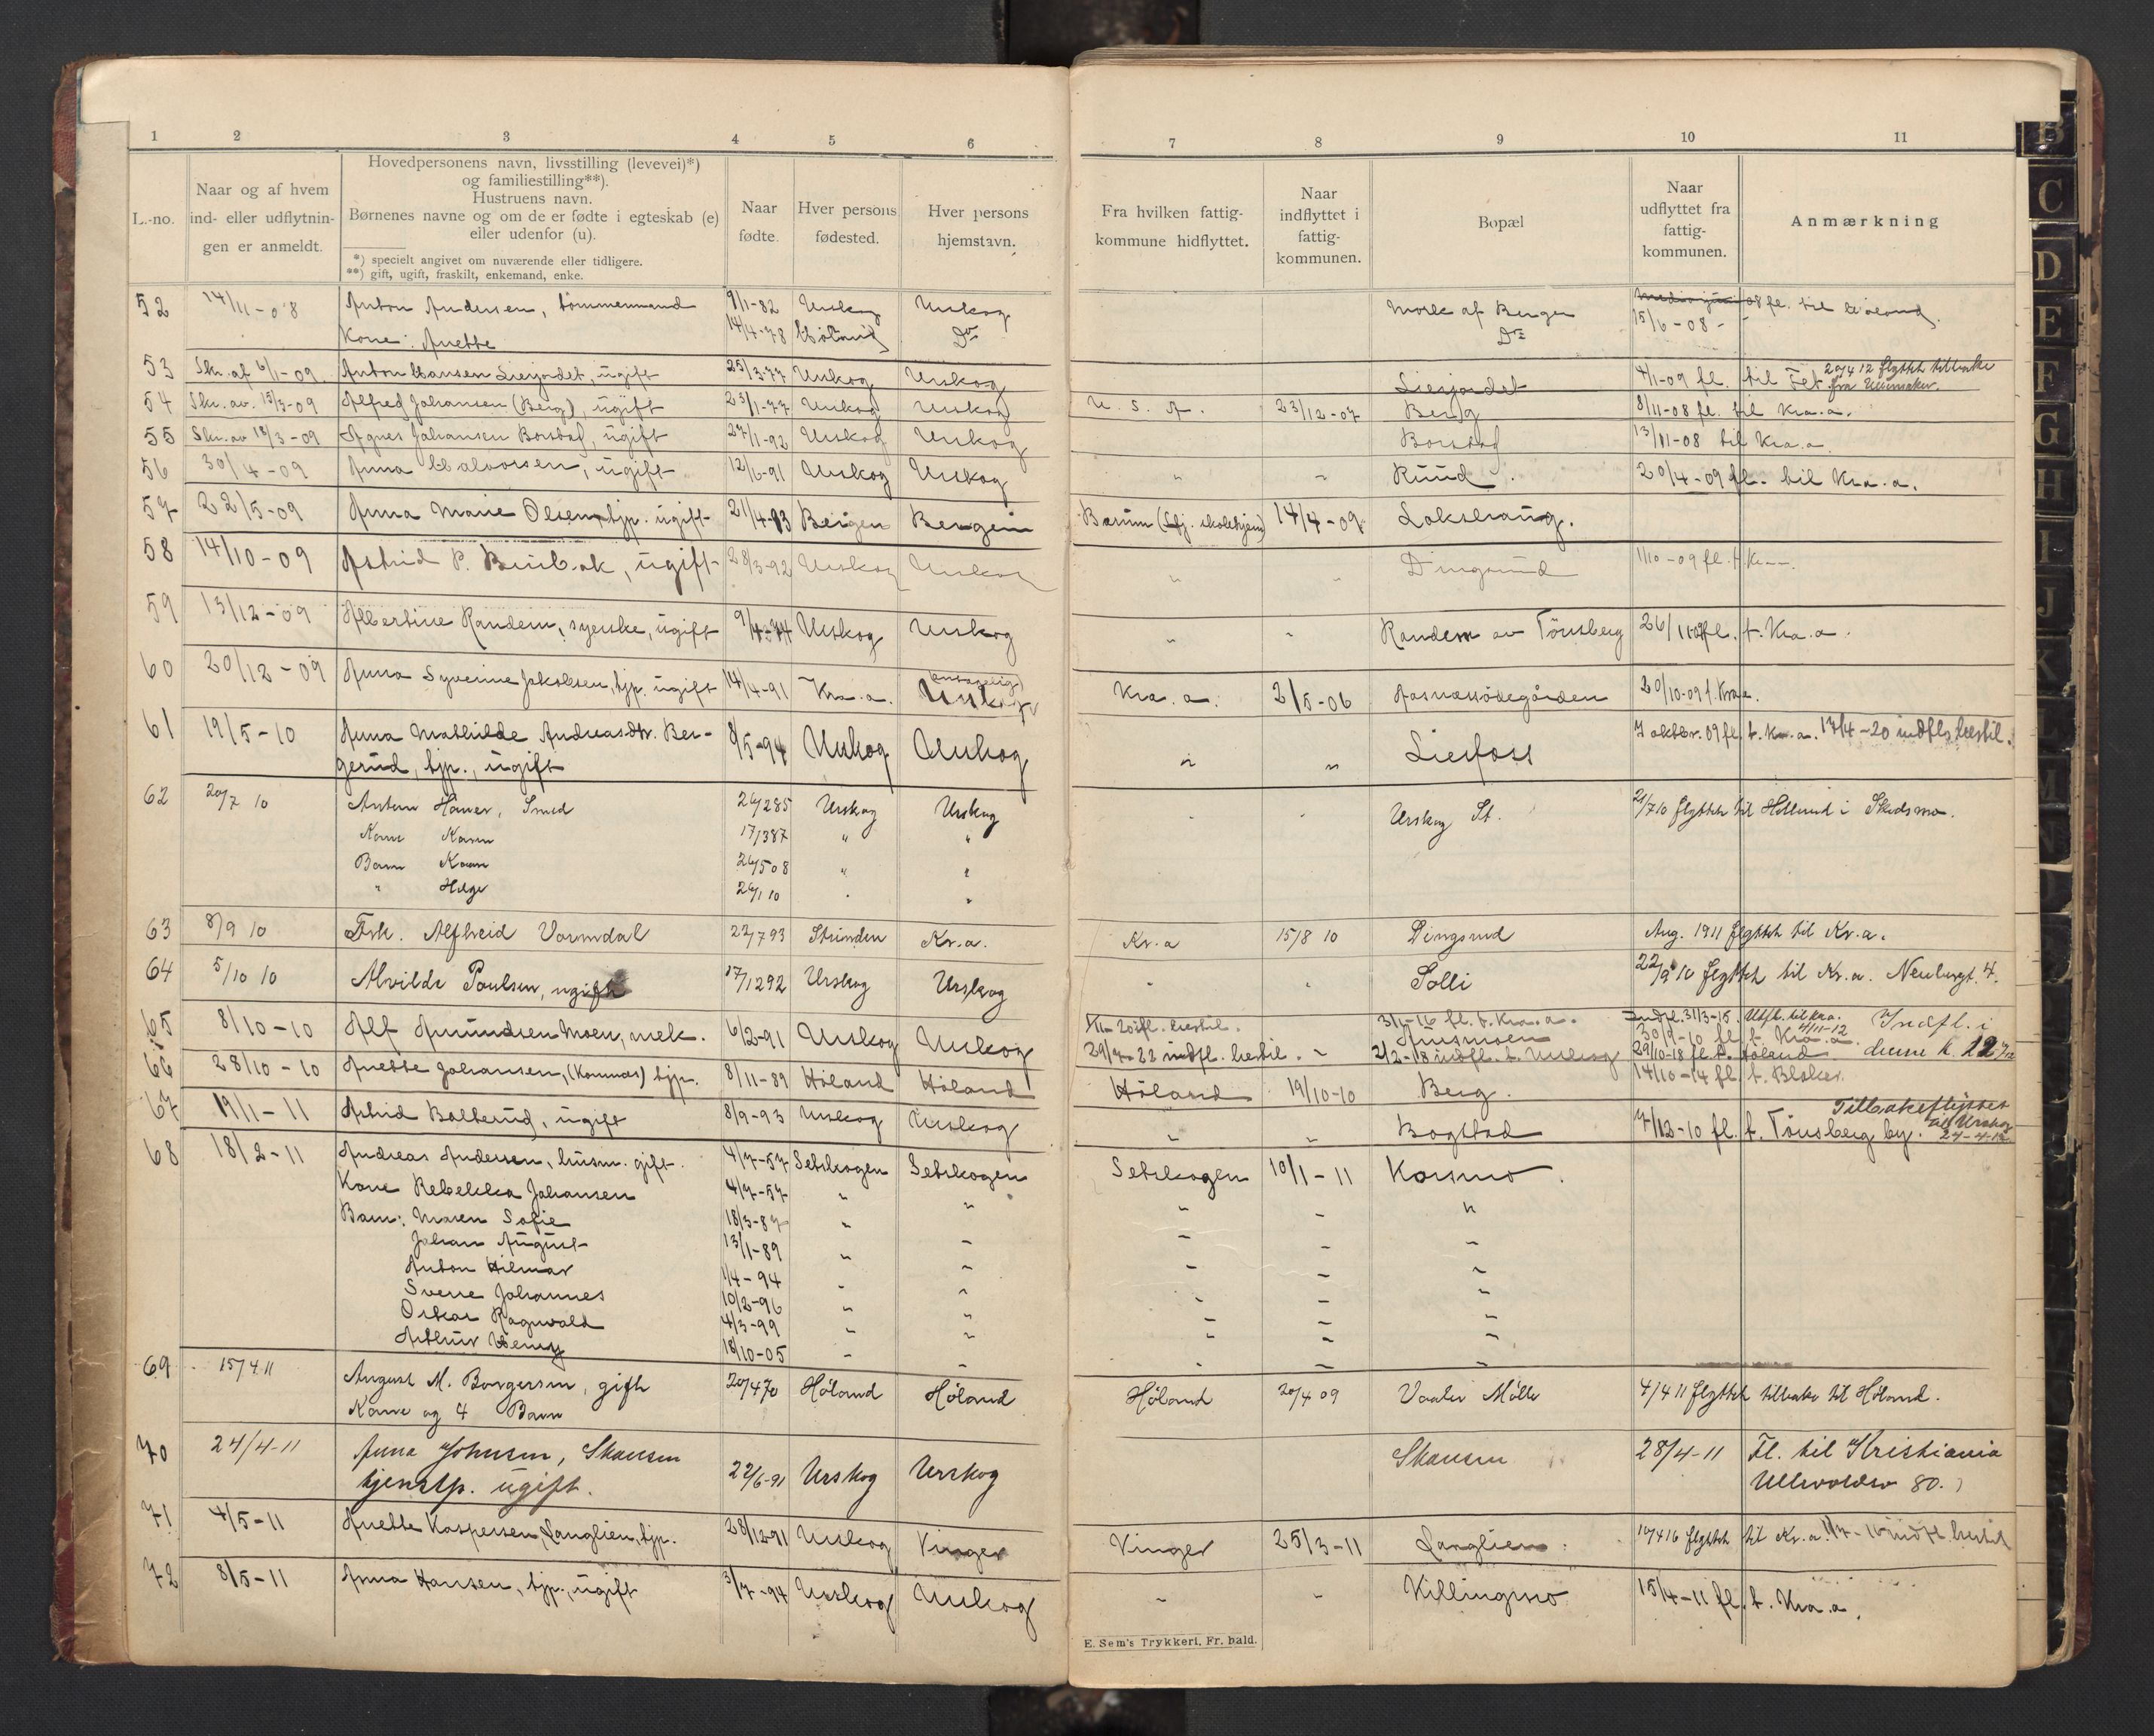 1 2 3 4 5 6 7 8 9 10 11
L.-no.
Naar og af hvem
ind- eller udflytnin-
gen er anmeldt.
Hovedpersonens navn, livsstilling (levevei)*)
og familiestilling**).
Hustruens navn.
Børnenes navne og om de er fødte i egteskab (e)
eller udenfor (u).
*) specielt angivet om nuværende eller tidligere.
**) gift, ugift, fraskilt, enkemand, enke.
Naar
fødte.
Hver persons
fødested.
Hver persons
hjemstavn.
Fra hvilken fattig-
kommune hidflyttet.
Naar
indflyttet i
fattig-
kommunen.
Bopæl
Naar
udflyttet fra
fattig-
kommunen.
Anmærkning
52 14/11-08 Anton Andersen, tömmermand 9/1-82 Urskog Urskog Mork af Berger 08 fl. til Höland.
Kone: Anette 14/4-78 Höland Do Do 15/6-08-
53 Skr. af 6/1-09. Anton Hansen Liejordet, ugift 25/3-77 Urskog Urskog Liejordet 4/1-09 fl. til Fet 20/4 12 flyttet tilbake
54 Skr. av. 13/3-09 Alfred Johansen (Berg), ugift 23/1-77 Urskog Urskog U. S. A. 23/12-07 Berg 8/11-08 fl. til Kra.a.
55 Skr. av 13/3-09 Agnes Johansen Borstad, ugift 27/1-92 Urskog Urskog Borstad 13/11-08 til Kra.a
56 30/4-09 Anna Halvorsen, ugift 12/6-91 Urskog Urskog " " Ruud. 20/4-09 fl. til Kra.a.
57 22/5-09 Anna Marie Olsen, tjp. ugift 21/4-93 Bergen Bergen Bærum ( skolehjem) 14/4-09 Lokshaug.
58 14/10-09 Astrid P. Bunbak, ugift 28/3-92 Urskog Urskog " " Dingsrud 1/10-09 fl. t. Kra.
59 13/12-09 Albertine Randem, syerske, ugift 9/4-74 Urskog Urskog " " Randem av Tönsberg 26/11-09 fl. t. Kra.a.
60 20/12-09 Anna Syverine Jakobsen, tjp. ugift 14/4-91 Kra.a. (antagelig) Urskog Kra.a. 2/5-06 Aasnæsödegården 20/10-09 t. Kra.a.
61 19/5-10 Anna Mathilde Andreasdtr. Ber- 8/5-94 Urskog Urskog " " Liesfoss 7 oktbr. 09 fl. t. Kr.a. 17/4-20 indfl. hertil.
gerud, tjp., ugift
62 20/7 10 Anton Haner, Smed 26/2 85 Urskog Urskog " " Urskog St. 21/7 10 flyttet til Hellerud i Skedsmo.
Kone Karen 17/3 87 " "
Barn Kaare 26/5 08 " "
" Helge 26/1 10 " "
63 8/9 10 Frk. Alfheid Vormdal 22/7 93 Strinden Kr.a. Kr.a 15/8 10 Dingsrud Aug. 1911 flyttet til Kr.a.
64 5/10 10 Alvilde Poulsen, ugift 17/12 92 Urskog Urskog " " Solli 22/9 10 flyttet til Kr.a. Neubergt. 4.
65 8/10-10 Alf Amundsen Moen, mek. 6/2-91 Urskog Urskog Amsmoen 30/9-10 fl. t. Kra.a. Indfl. i
3/1-16 fl. t. Kra.a. Indfl. 31/3-15. Utfl. til Kra. 4/11-12
29/7-22 indfl. hertil. 2/2-18 indfl. t. Urskog 29/10-18 fl. t. Höland
66 28/10-10 Anette Johansen, (Konnas) tjp. 8/11-89 Höland Höland Höland 19/10-10 Berg. 14/10-14 fl. t. Blaker.
67 19/1-11 Astrid Bolterud, ugift 8/9-93 Urskog Urskog " " Bogstad 7/12-10 fl. t. Tönsberg by. Tilbakeflyttet
til Urskog
24-4-12
68 18/2-11 Andreas Andersen, husm. gift. 4/7-57 Setskogen Setskogen Setskogen 10/1-11 Korsmo.
Kone Rebekka Johansen 4/7-57 " " " " "
Barn: Maren Sofie 18/3-87 " " " " "
Johan August 13/1-89 " " " " "
Anton Hilmar 1/4-94 " " " " "
Sverre Johannes 10/2-96 " " " " "
Oskar Ragnvald 4/3-99 " " " " "
Arthur Henry 18/10-05 " " " " "
69 15/4 11 August M. Borgersen, gift 20/4 70 Höland Höland Höland 20/4 09 Vaaler Mölle 4/4 11 flyttet tilbake til Höland.
Kone og 4 Barn
70 24/4-11 Anna Johnsen, Skansen 22/6-91 Urskog Urskog Skansen 28/4-11 Fl. til Kristiania
tjenstp. ugift. Ullevoldsv 80.
71 4/5-11 Anette Kaspersen, Langlien, tjp. 28/12-91 Urskog Vinger Vinger 25/3-11 Langlien. 10/4 16 flyttet til Kr.a. indfl. hertil
72 8/5-11 Anna Hansen, tjp., ugift 3/7-94 Urskog Urskog " " Killingmo 15/4-11 fl. t. Kra.a.
E. Sem's Trykkeri, Fr. hald.
B
C
D
E
F
G
H
I
J
K
L
M
N